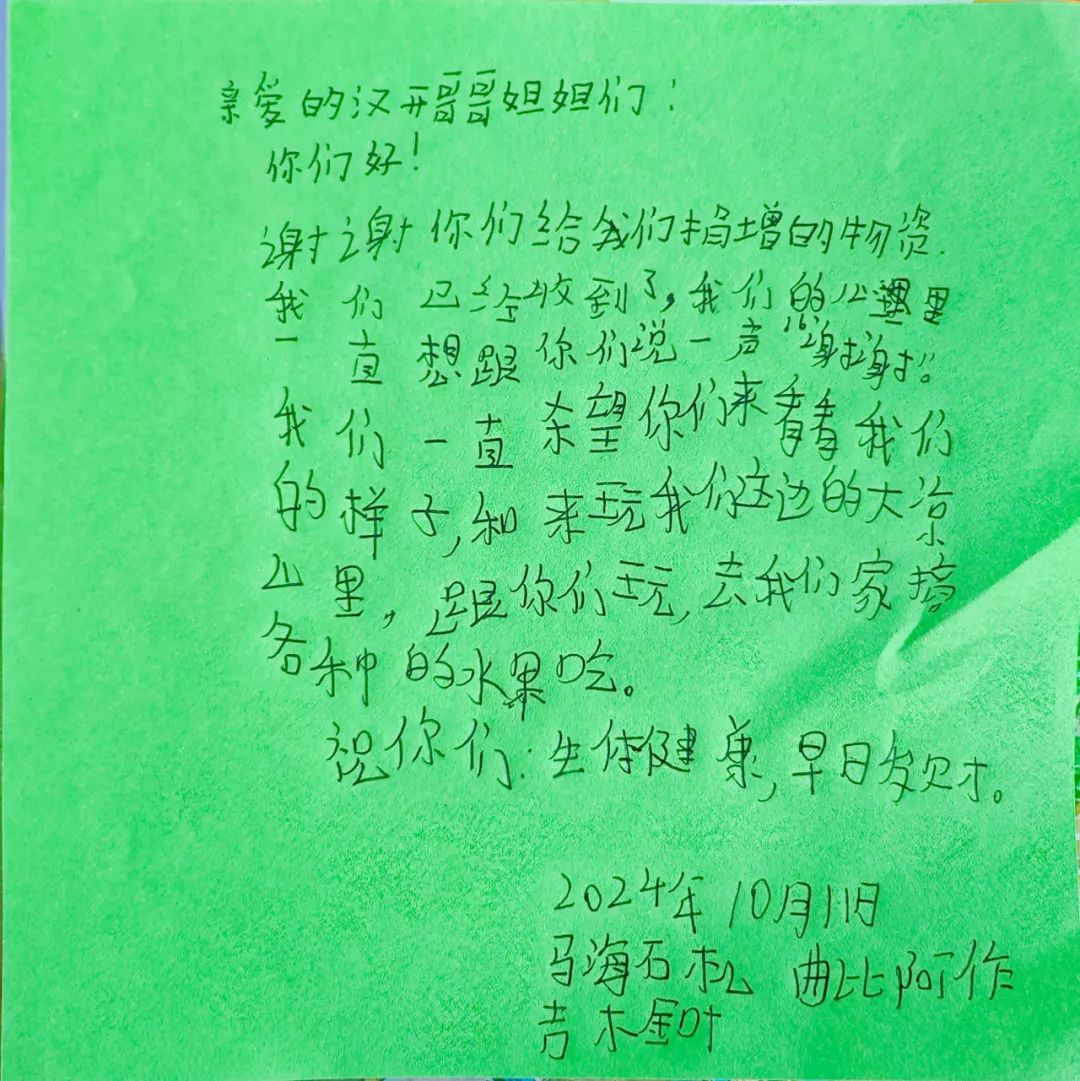 亲爱的汉开哥哥姐姐们：
你们好！
谢谢你们给我们捐增的物资.
我们已经收到了，我们的心里
一直想跟你们说一声“谢谢”。
我们一直希望你们来看看我们
的样子，和来玩我们这边的大凉
山里，跟你们玩，去我们家摘
各种的水果吃。
祝你们：生体健康，早日发财。
2024年10月11日
马海石机 曲比阿作
吉木金叶